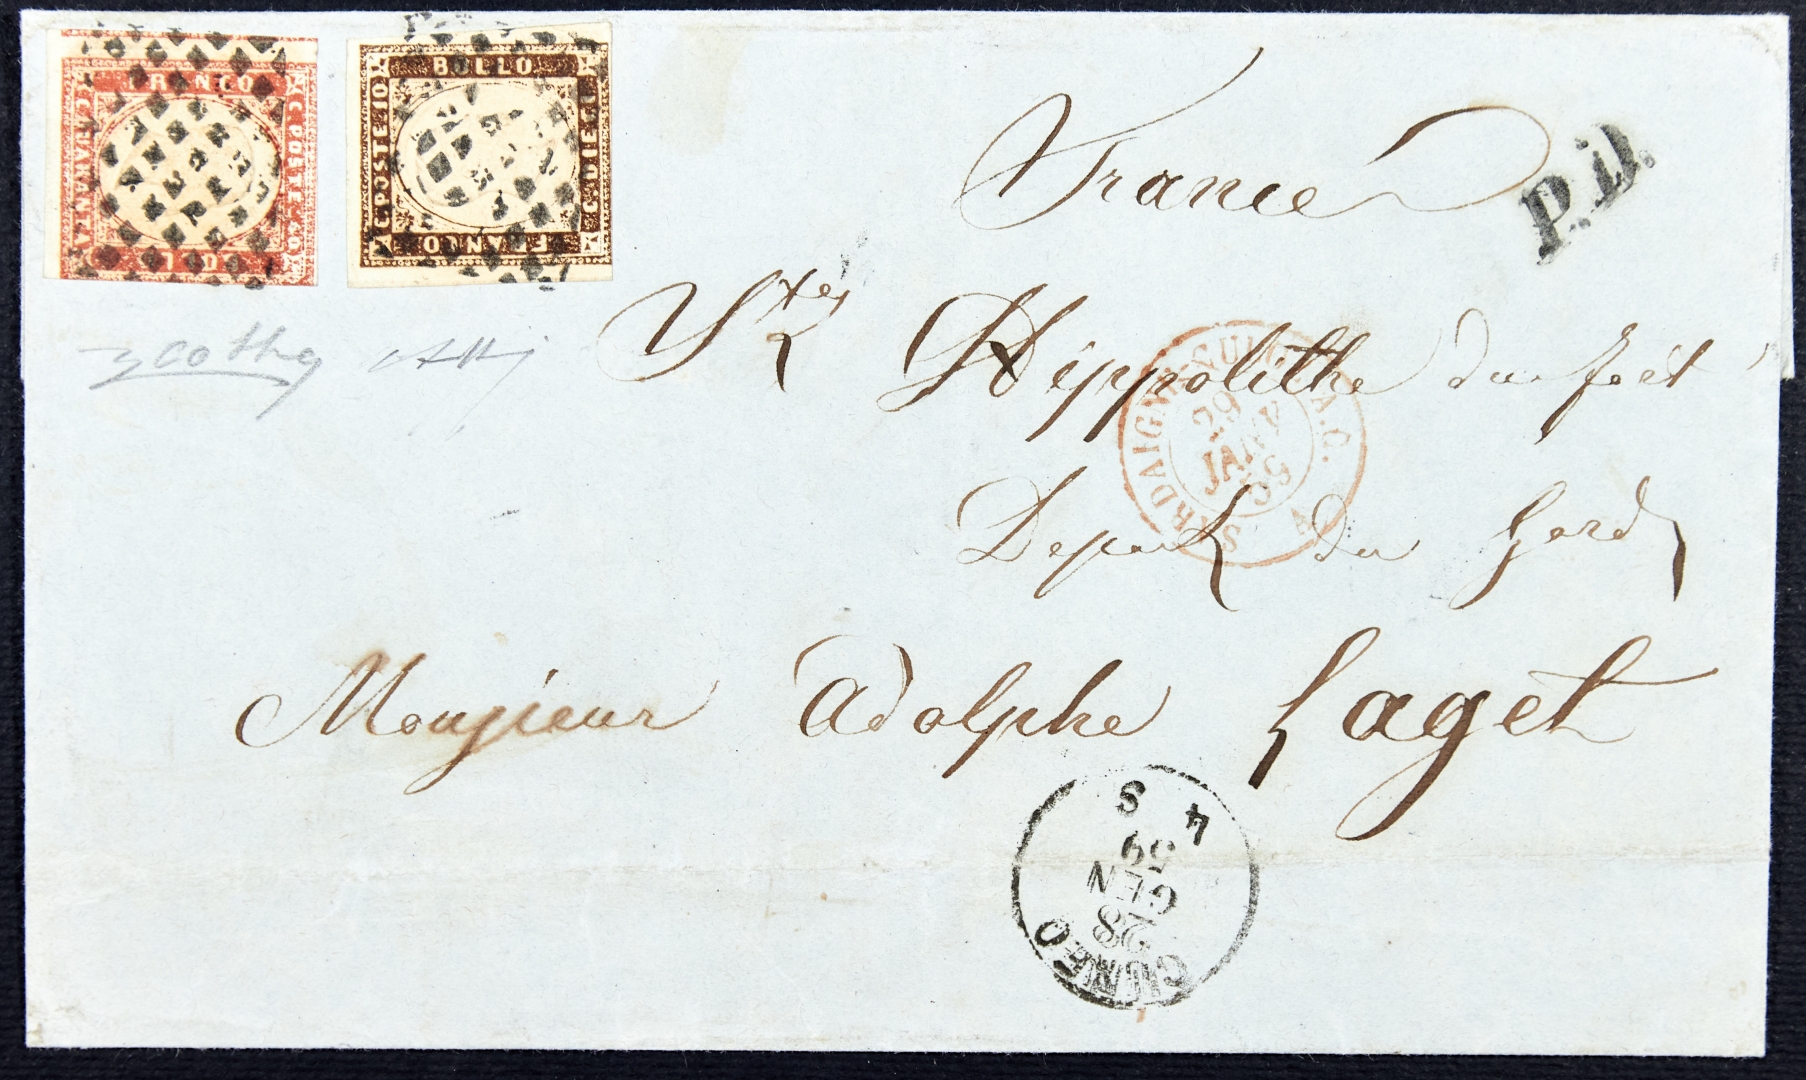 FRANCO
C. QUARANTA
C. POSTE 40
BOLLO
BOLLO
C. POSTE 10
C. DIECI
FRANCO
P.D.
France
St Hippolithe du fort
Depart du Gard
Monsieur Adolphe Laget
SARDAIGNE CULOZ A.C.
29
JANV
59
4 S
59
GEN
28
CUNEO